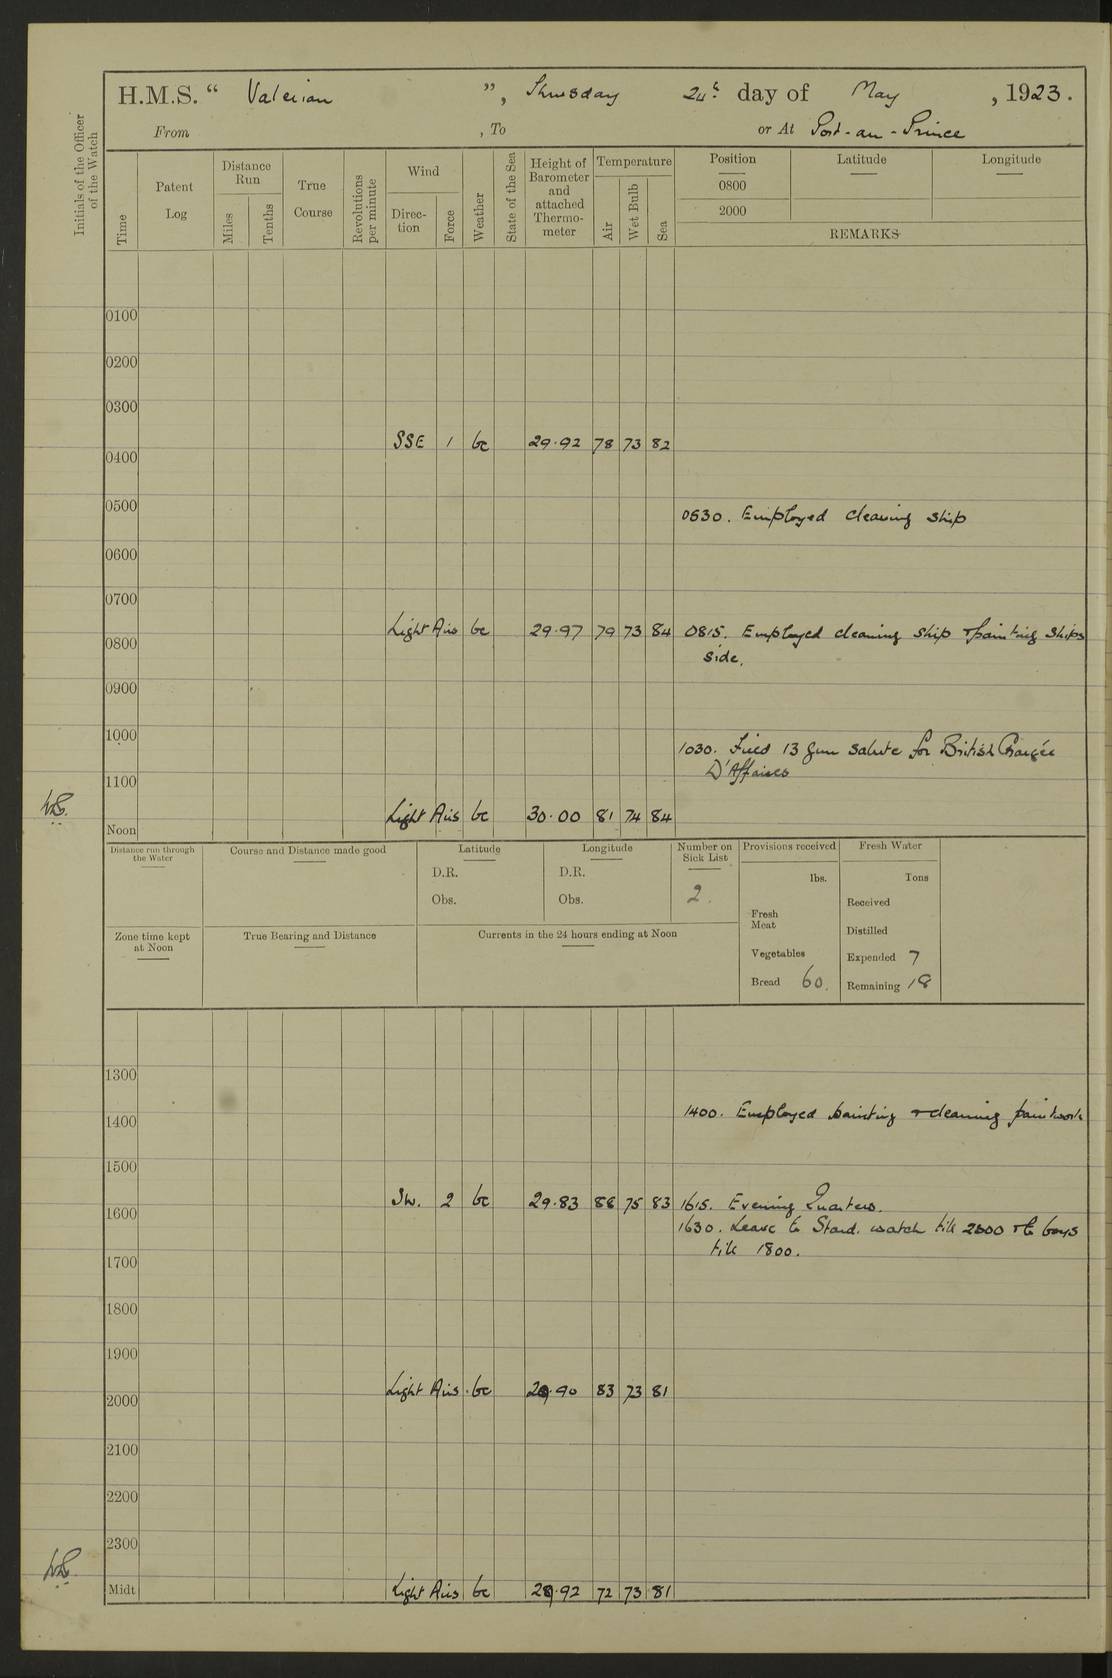 H.M.S. “ Valerian ”, Thursday 24th day of May, 1923.
From , To or At Port-au-Prince
Initials of the Officer of the Watch
Time
Patent Log
Distance Run
Miles
Tenths
True Course
Revolutions per minute
Wind
Direction
Force
Weather
State of the Sea
Height of Barometer and attached Thermometer
Temperature
Air
Wet Bulb
Sea
Position Latitude Longitude
0800
2000
REMARKS
0100
0200
0300
SSE 1 bc 29.92 78 73 82
0400
0500
0530. Employed cleaning ship
0600
0700
Light Airs bc 29.97 79 73 84 0815. Employed cleaning ship + painting ships
0800
side.
0900
1000
1030. Fired 13 gun salute for British Chargée
D'Affaires
1100
Light Airs bc 30.00 81 74 84
Noon
Distance run through the Water
Course and Distance made good
Latitude
D.R.
Obs.
Longitude
D.R.
Obs.
Number on Sick List
2.
Provisions received
lbs.
Fresh Meat
Vegetables
Bread 60.
Fresh Water
Tons
Received
Distilled
Expended 7
Remaining 18
Zone time kept at Noon
True Bearing and Distance
Currents in the 24 hours ending at Noon
1300
1400. Employed painting + cleaning paintwork
1400
1500
SW. 2 bc 29.83 75 83 1615. Evening Quarters.
1600
1630. Leave to Starbd. watch till 2300 + to boys
till 1800.
1700
1800
1900
Light Airs. bc 29.90 83 73 81
2000
2100
2200
2300
Light Airs bc 29.92 72 73 81
Midt